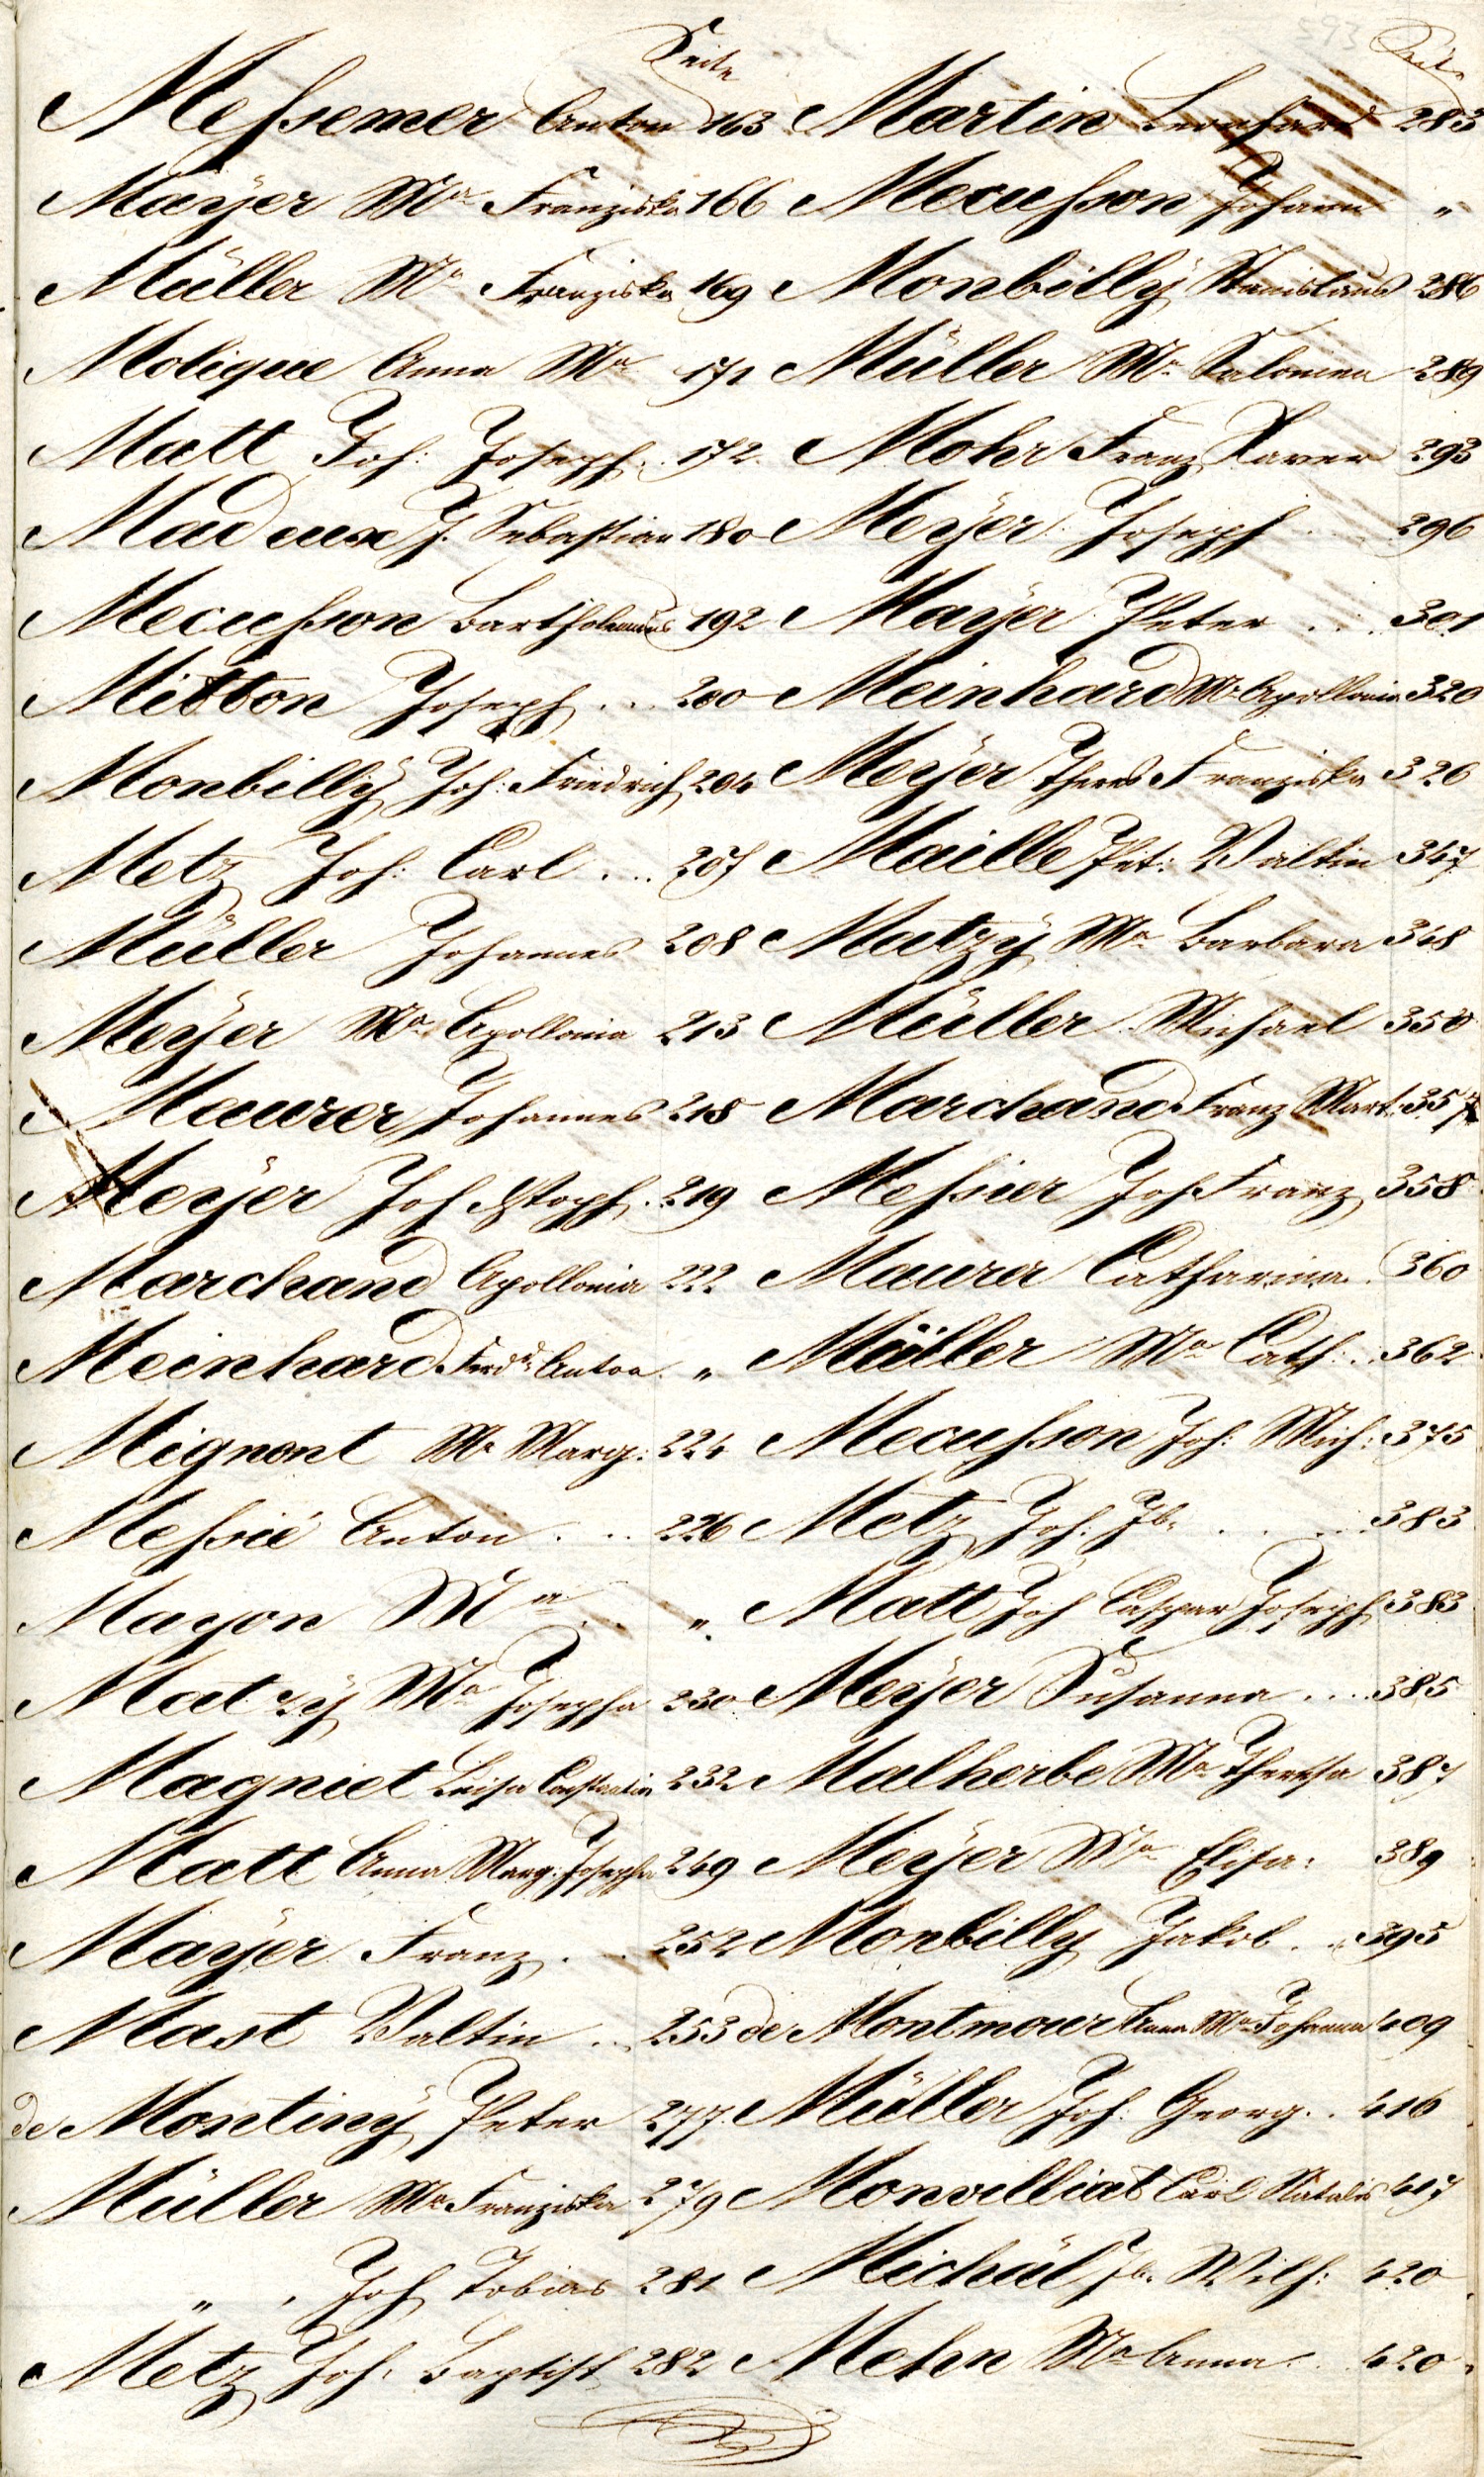 593
Seite
Meßemer Anton 163
Mayer Mª Franziska 166
Müller Mª Franziska 169
Molique Anna Mª 171
Matt Joh: Joseph. 172
Madeux J. Sebastian 180
Mecusson Bartholomäus 192
Mitton Joseph ... 200
Monbilly Joh: Friedrich 204
Metz Joh: Carl ... 207
Müller Johannes 208
Meyer Mª Apollonia 213
Maurer Johannes 218
Meyer Joh Xstoph. 219
Marchand Apollonia 222
Meinhard Ferdd Anton „
Mignont Mª Marg: 224
Meßié Anton ... 226
Mayon Mª „
Matzy Mª Josepha 230
Magniet Luisa Constantia 232
Matt Anna Marg: Josepha 249
Mayer Franz . . 252
Mast Valtin .. 253
de Montiny Peter 277
Müller Mª Franziska 279
„ , Joh Tobias 281
Metz Joh: Baptist 282
Seite
Martin Leonhard 283
Mecusson Johann „
Monbilly Stanislaus 286
Müller Mª Salomea 289
Mohr Franz Xaver 293
Meyer Joseph 296
Mayer Peter ... 301
Meinhard Mª Apollonia 320
Meyer Theres Franziska 320
Maille Pet: Valtin 347
Matzy Mª Barbara 348
Müller Michael 350
Marchand Franz Mart: 357
Meßier Joh Franz 358
Maurer Catharina. 360
Müller Mª Cath: .. 362
Mecusson Joh: Mich: 375
Metz Joh: Jb. .... 383
Matt Joh Caspar Joseph 383
Meyer Susanna .... 385
Malherbe Mª Theresa 387
Meyer Mª Elisa: 389
Monbilly Jakob .. 395
de Montmour Anna Mª Johanna 409
Müller Joh: Georg .. 416
Monvilliat Carl Natalis 417
Michäl Jb. Wilh: 420
Mehn Mª Anna .. 420